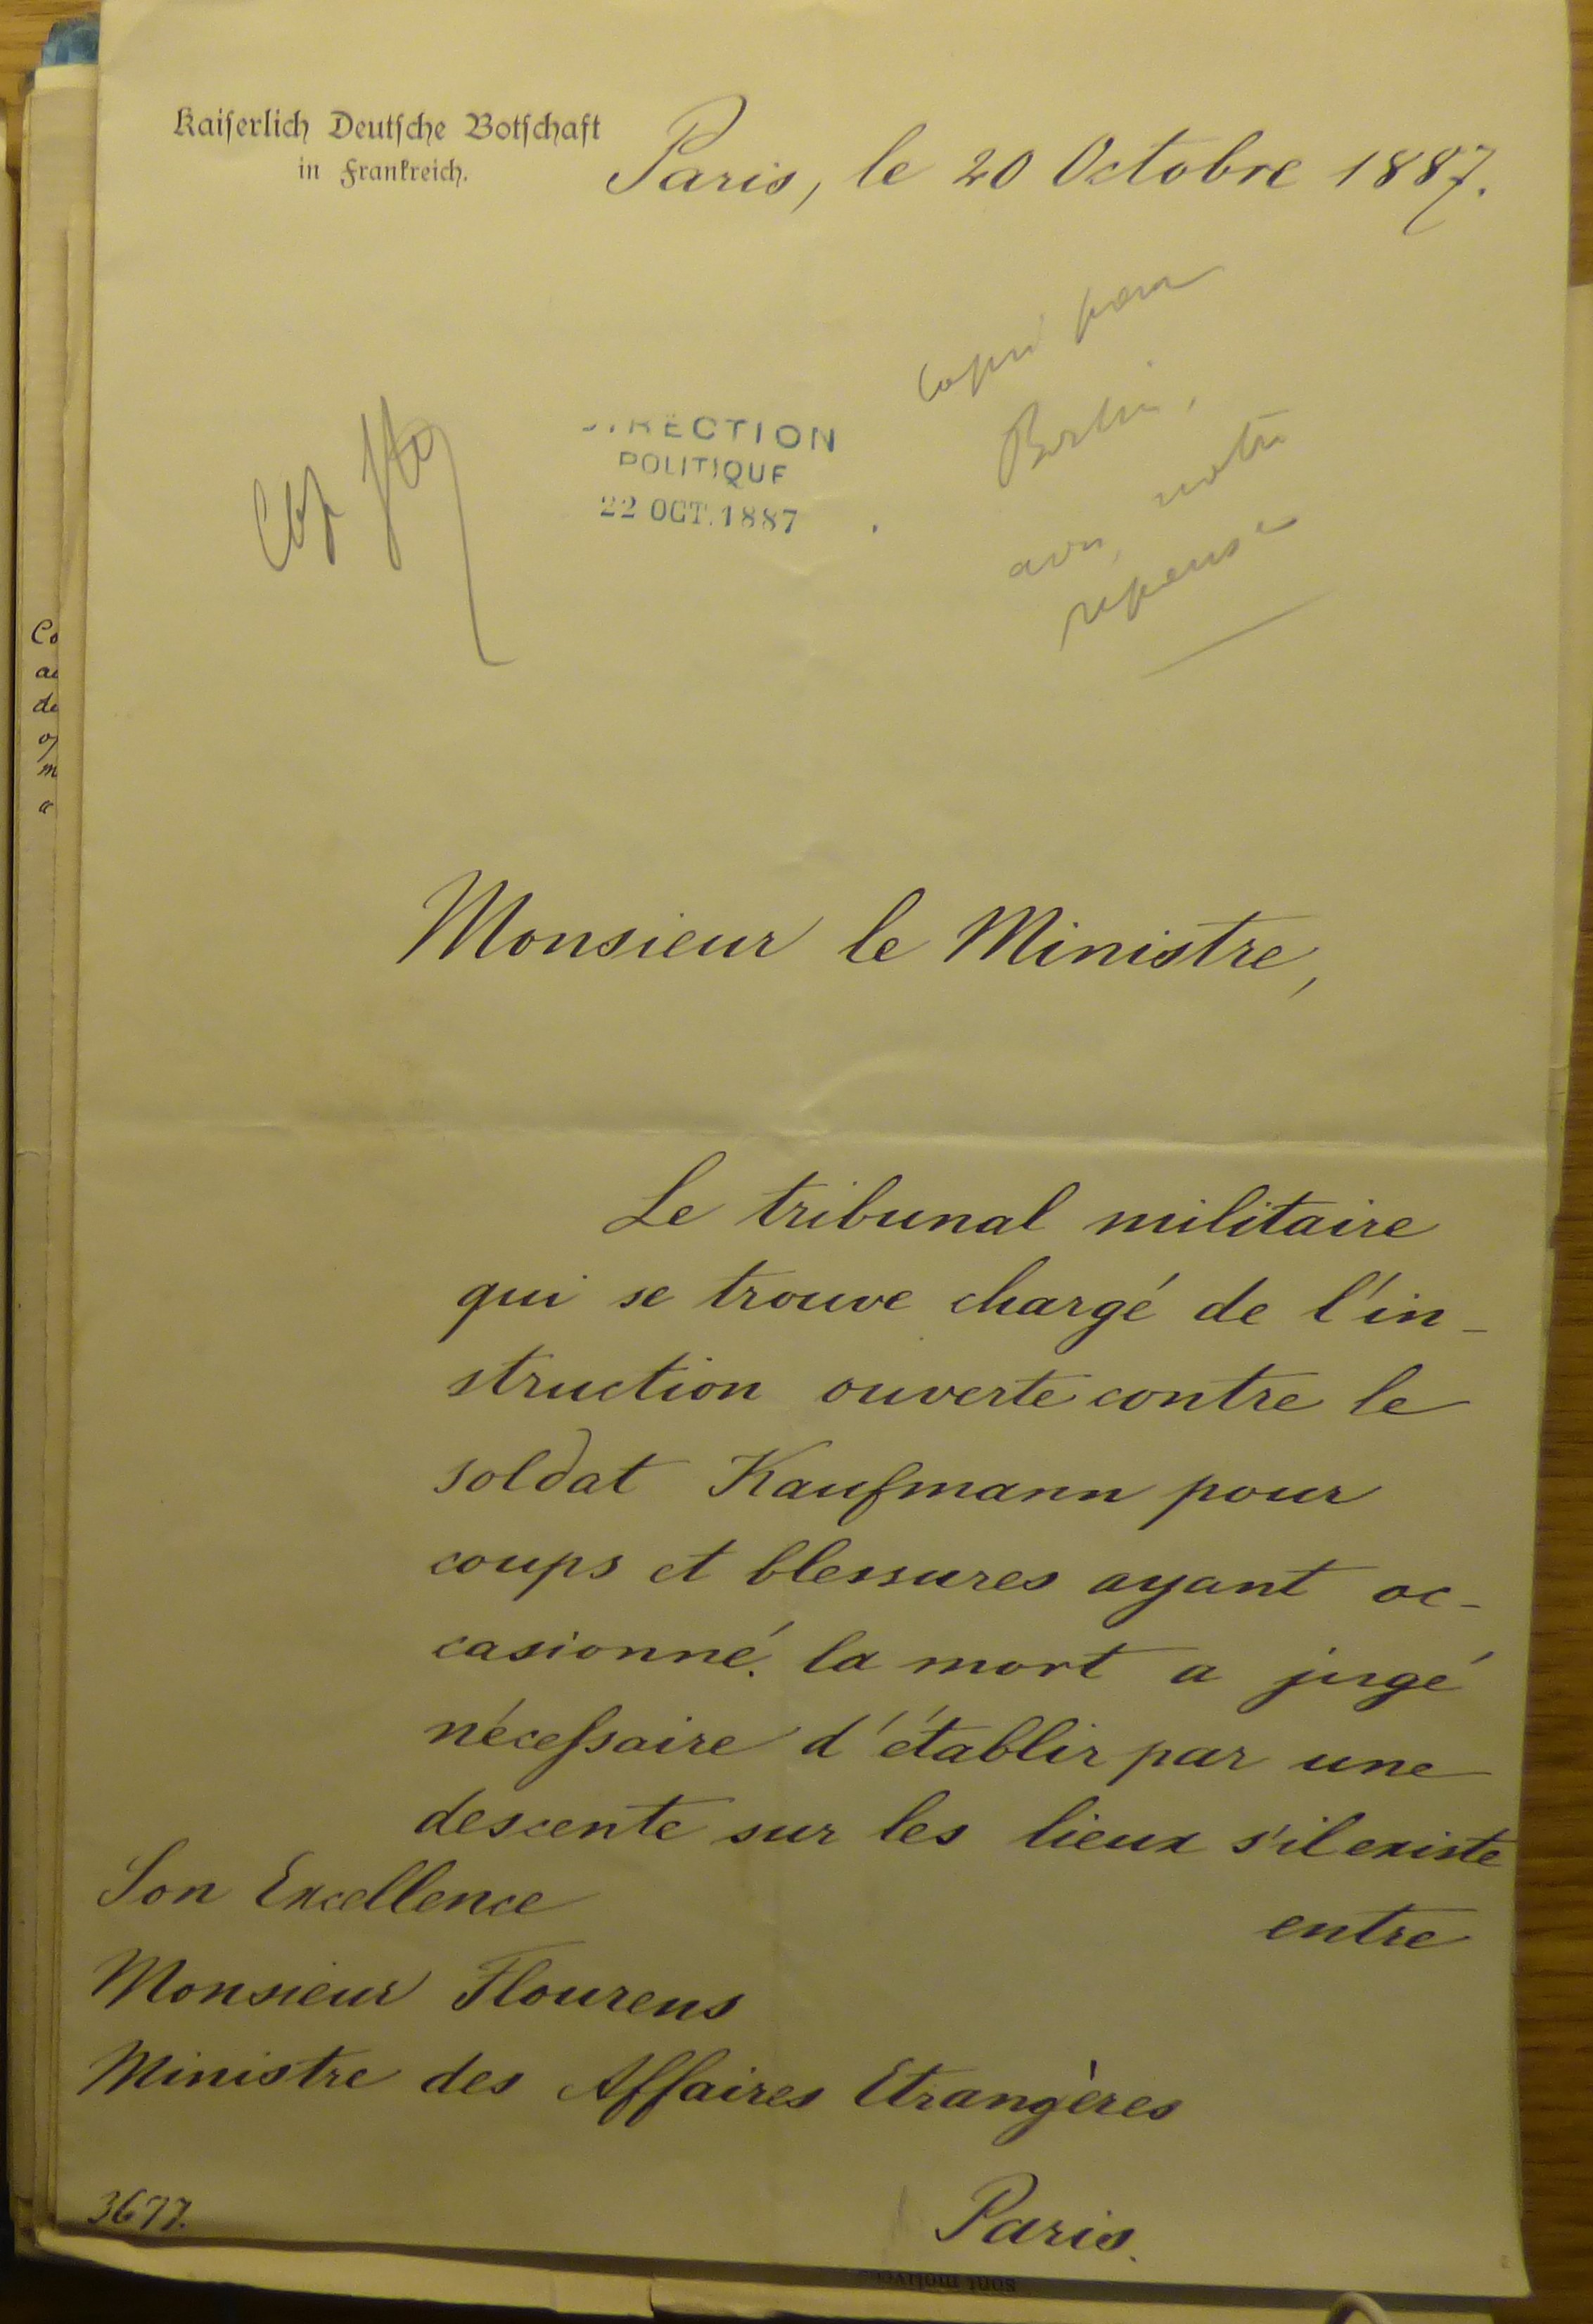 Kaiserlich Deutsche Botschaft
in Frankreich.
Paris, le 20 Octobre 1887.
Copié pour
Berlin,
avec notre
réponse
DIRECTION
POLITIQUE
22 OCT. 1887
Monsieur le Ministre,
Le tribunal militaire
qui se trouve chargé de l'in-
struction ouverte contre le
soldat Kaufmann pour
coups et blessures ayant oc-
casionné la mort a jugé
nécessaire d'établir par une
descente sur les lieux s'il existe
entre
Son Excellence
Monsieur Flourens
Ministre des Affaires Etrangères
Paris.
3677.